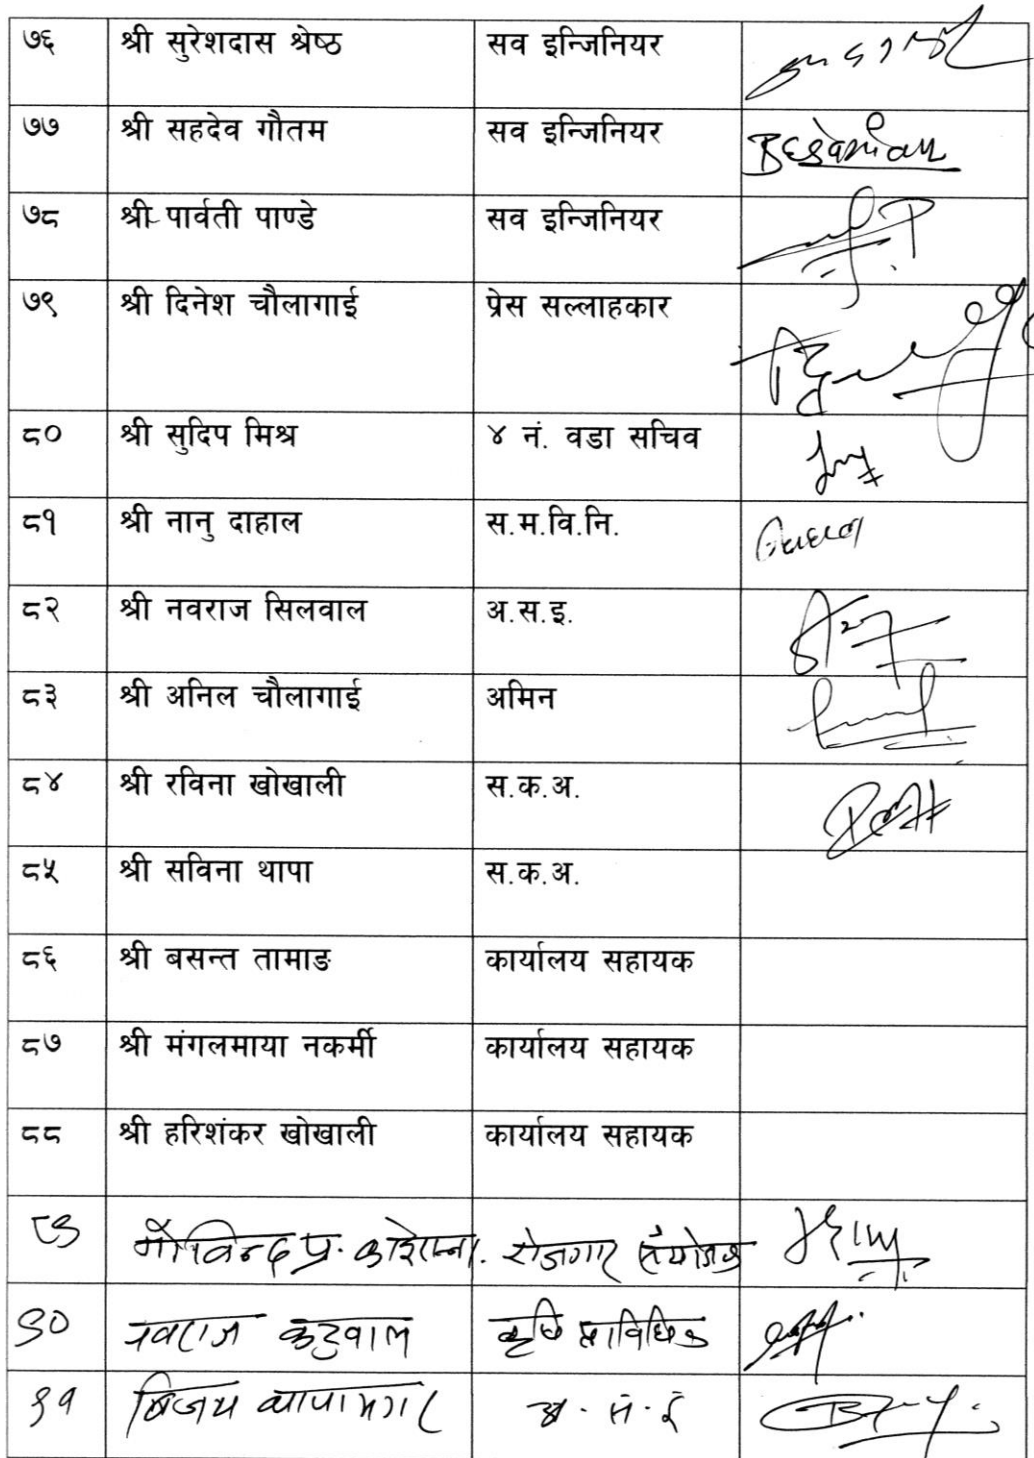 ७६ श्री सुरेशदास श्रेष्ठ सव इन्जिनियर
७७ श्री सहदेव गौतम सव इन्जिनियर
७८ श्री पार्वती पाण्डे सव इन्जिनियर
७९ श्री दिनेश चौलागाई प्रेस सल्लाहकार
८० श्री सुदिप मिश्र ४ नं. वडा सचिव
८१ श्री नानु दाहाल स.म.वि.नि.
८२ श्री नवराज सिलवाल अ.स.इ.
८३ श्री अनिल चौलागाई अमिन
८४ श्री रविना खोखाली स.क.अ.
८५ श्री सविना थापा स.क.अ.
८६ श्री बसन्त तामाङ कार्यालय सहायक
८७ श्री मंगलमाया नकर्मी कार्यालय सहायक
८८ श्री हरिशंकर खोखाली कार्यालय सहायक
८९ गोविन्द प्र. रोजगार संयोजक
९० नवराज कटुवाल कृषि प्राविधिक
९१ बिजय थापा मगर अ.स.ई